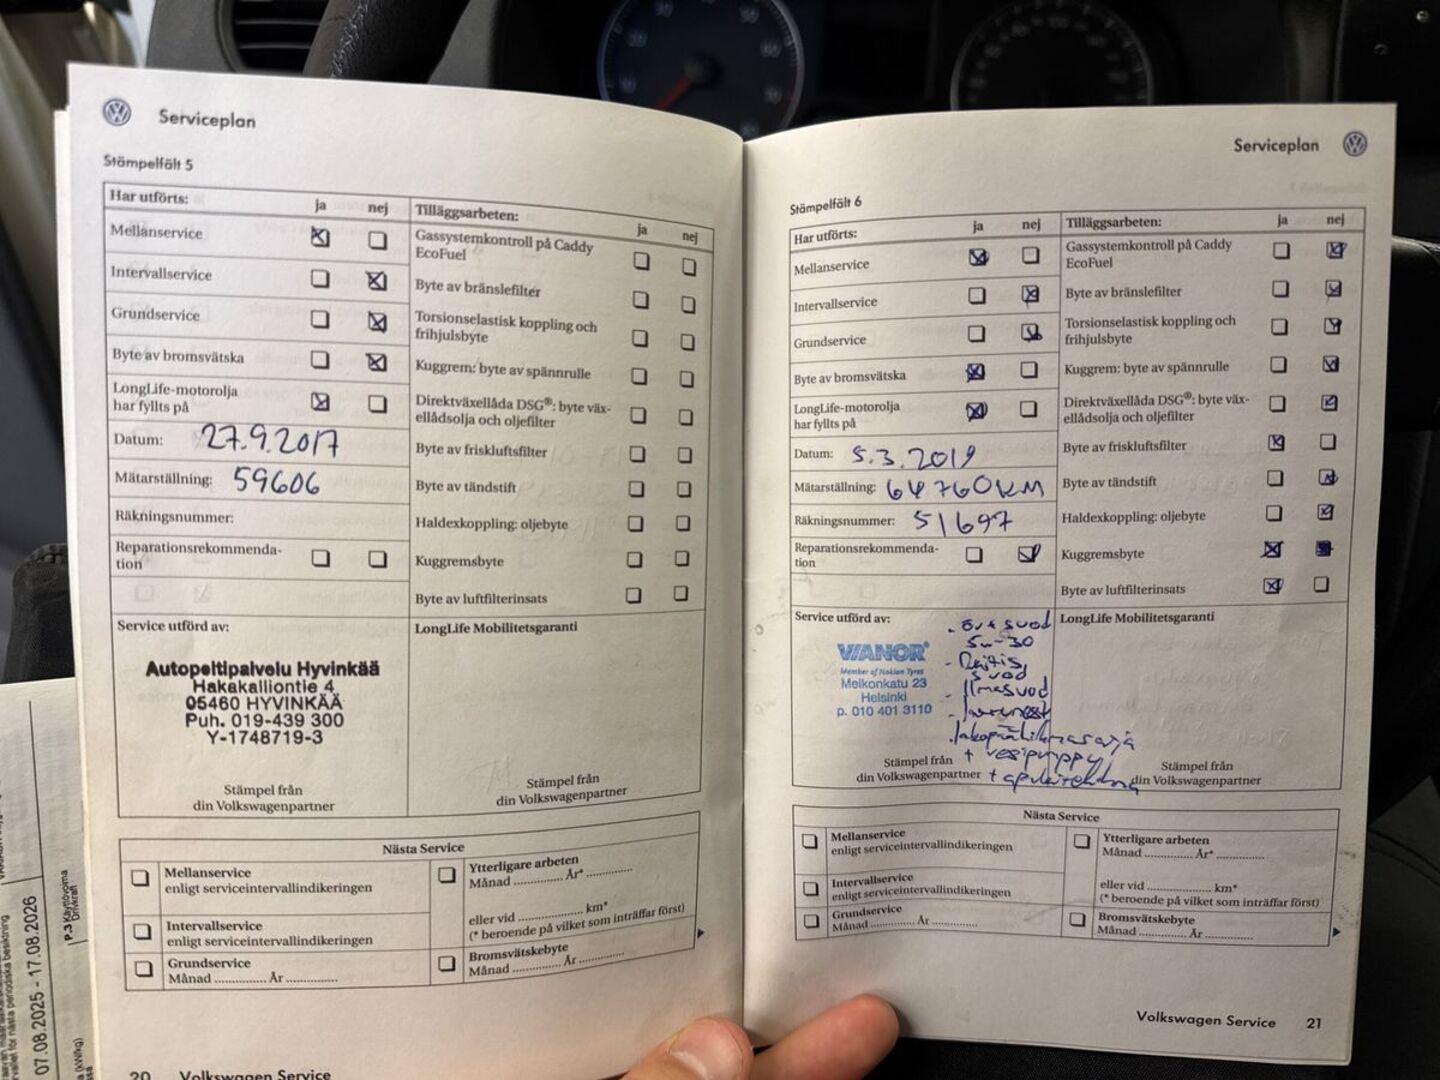 Serviceplan
Stämpelfält 5
Har utförts: ja nej
Mellanservice
Intervallservice
Grundservice
Byte av bromsvätska
LongLife-motorolja
har fyllts på
Datum: 27.9.2017
Mätarställning: 59606
Räkningsnummer:
Reparationsrekommenda-
tion
Tilläggsarbeten: ja nej
Gassystemkontroll på Caddy
EcoFuel
Byte av bränslefilter
Torsionselastisk koppling och
frihjulsbyte
Kuggrem: byte av spännrulle
Direktväxellåda DSG®: byte väx-
ellådsolja och oljefilter
Byte av friskluftsfilter
Byte av tändstift
Haldexkoppling: oljebyte
Kuggremsbyte
Byte av luftfilterinsats
Service utförd av:
Autopeltipalvelu Hyvinkää
Hakakalliontie 4
05460 HYVINKÄÄ
Puh. 019-439 300
Y-1748719-3
Stämpel från
din Volkswagenpartner
LongLife Mobilitetsgaranti
Stämpel från
din Volkswagenpartner
Nästa Service
Mellanservice
enligt serviceintervallindikeringen
Intervallservice
enligt serviceintervallindikeringen
Grundservice
Månad .............. År ..............
Ytterligare arbeten
Månad .............. År* ..............
eller vid .................... km*
(* beroende på vilket som inträffar först)
Bromsvätskebyte
Månad .............. År ..............
20 Volkswagen Service
Serviceplan
Stämpelfält 6
Har utförts: ja nej
Mellanservice
Intervallservice
Grundservice
Byte av bromsvätska
LongLife-motorolja
har fyllts på
Datum: 5.3.2019
Mätarställning: 64760KM
Räkningsnummer: 51697
Reparationsrekommenda-
tion
Tilläggsarbeten: ja nej
Gassystemkontroll på Caddy
EcoFuel
Byte av bränslefilter
Torsionselastisk koppling och
frihjulsbyte
Kuggrem: byte av spännrulle
Direktväxellåda DSG®: byte väx-
ellådsolja och oljefilter
Byte av friskluftsfilter
Byte av tändstift
Haldexkoppling: oljebyte
Kuggremsbyte
Byte av luftfilterinsats
Service utförd av:
VIANOR
Member of Nokian Tyres
Melkonkatu 23
Helsinki
p. 010 401 3110
suod
5w-30
- Raitis,
suod
- Ilmasuod
- Jarrunest
. Jakopäähihnasarja
+ vesipumppy
+ apulaitehihna
Stämpel från
din Volkswagenpartner
LongLife Mobilitetsgaranti
Stämpel från
din Volkswagenpartner
Nästa Service
Mellanservice
enligt serviceintervallindikeringen
Intervallservice
enligt serviceintervallindikeringen
Grundservice
Månad .............. År ..............
Ytterligare arbeten
Månad .............. År* ..............
eller vid .................... km*
(* beroende på vilket som inträffar först)
Bromsvätskebyte
Månad .............. År ..............
Volkswagen Service 21
07.08.2025 - 17.08.2026
P.3 Käyttövoima
Drivkraft
(kW/kg)